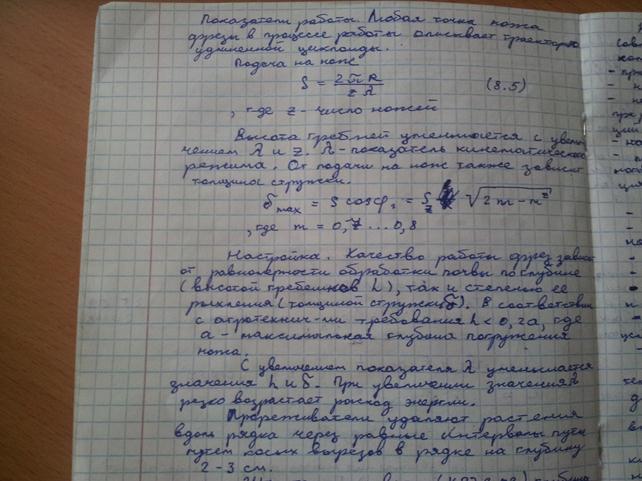 Показатели работы. Любая точка ножа
фрезы в процессе работы описывает траекторию
удлиненной циклоиды.
Подача на нож
S = 2πR / zλ (8.5)
, где z - число ножей
Высота гребней уменьшается с увели-
чением λ и z. λ - показатель кинематического
режима. От подачи на нож также зависит
толщина стружки.
δmax = S cosφ = Sz √2m - m²
, где m = 0,7...0,8
Настройка. Качество работы фрез зависит
от равномерности обработки почвы по глубине
(высотой гребешков h), так и степенью ее
рыхления (толщиной стружки δ). В соответствии
с агротехнич-ми требования h < 0,2a, где
a - максимальная глубина погружения
ножа.
С увеличением показателя λ уменьшается
значения h и δ. При увеличении значения λ
резко возрастает расход энергии.
Прореживатели удаляют растения
вдоль рядка через равные интервалы путем
путем косых вырезов в рядке на глубину
2-3 см.